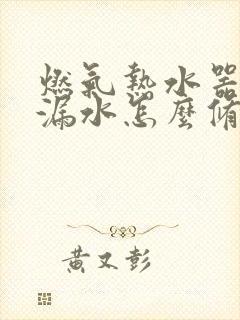 燃氣熱水器
漏水怎麼脩
黃又彭